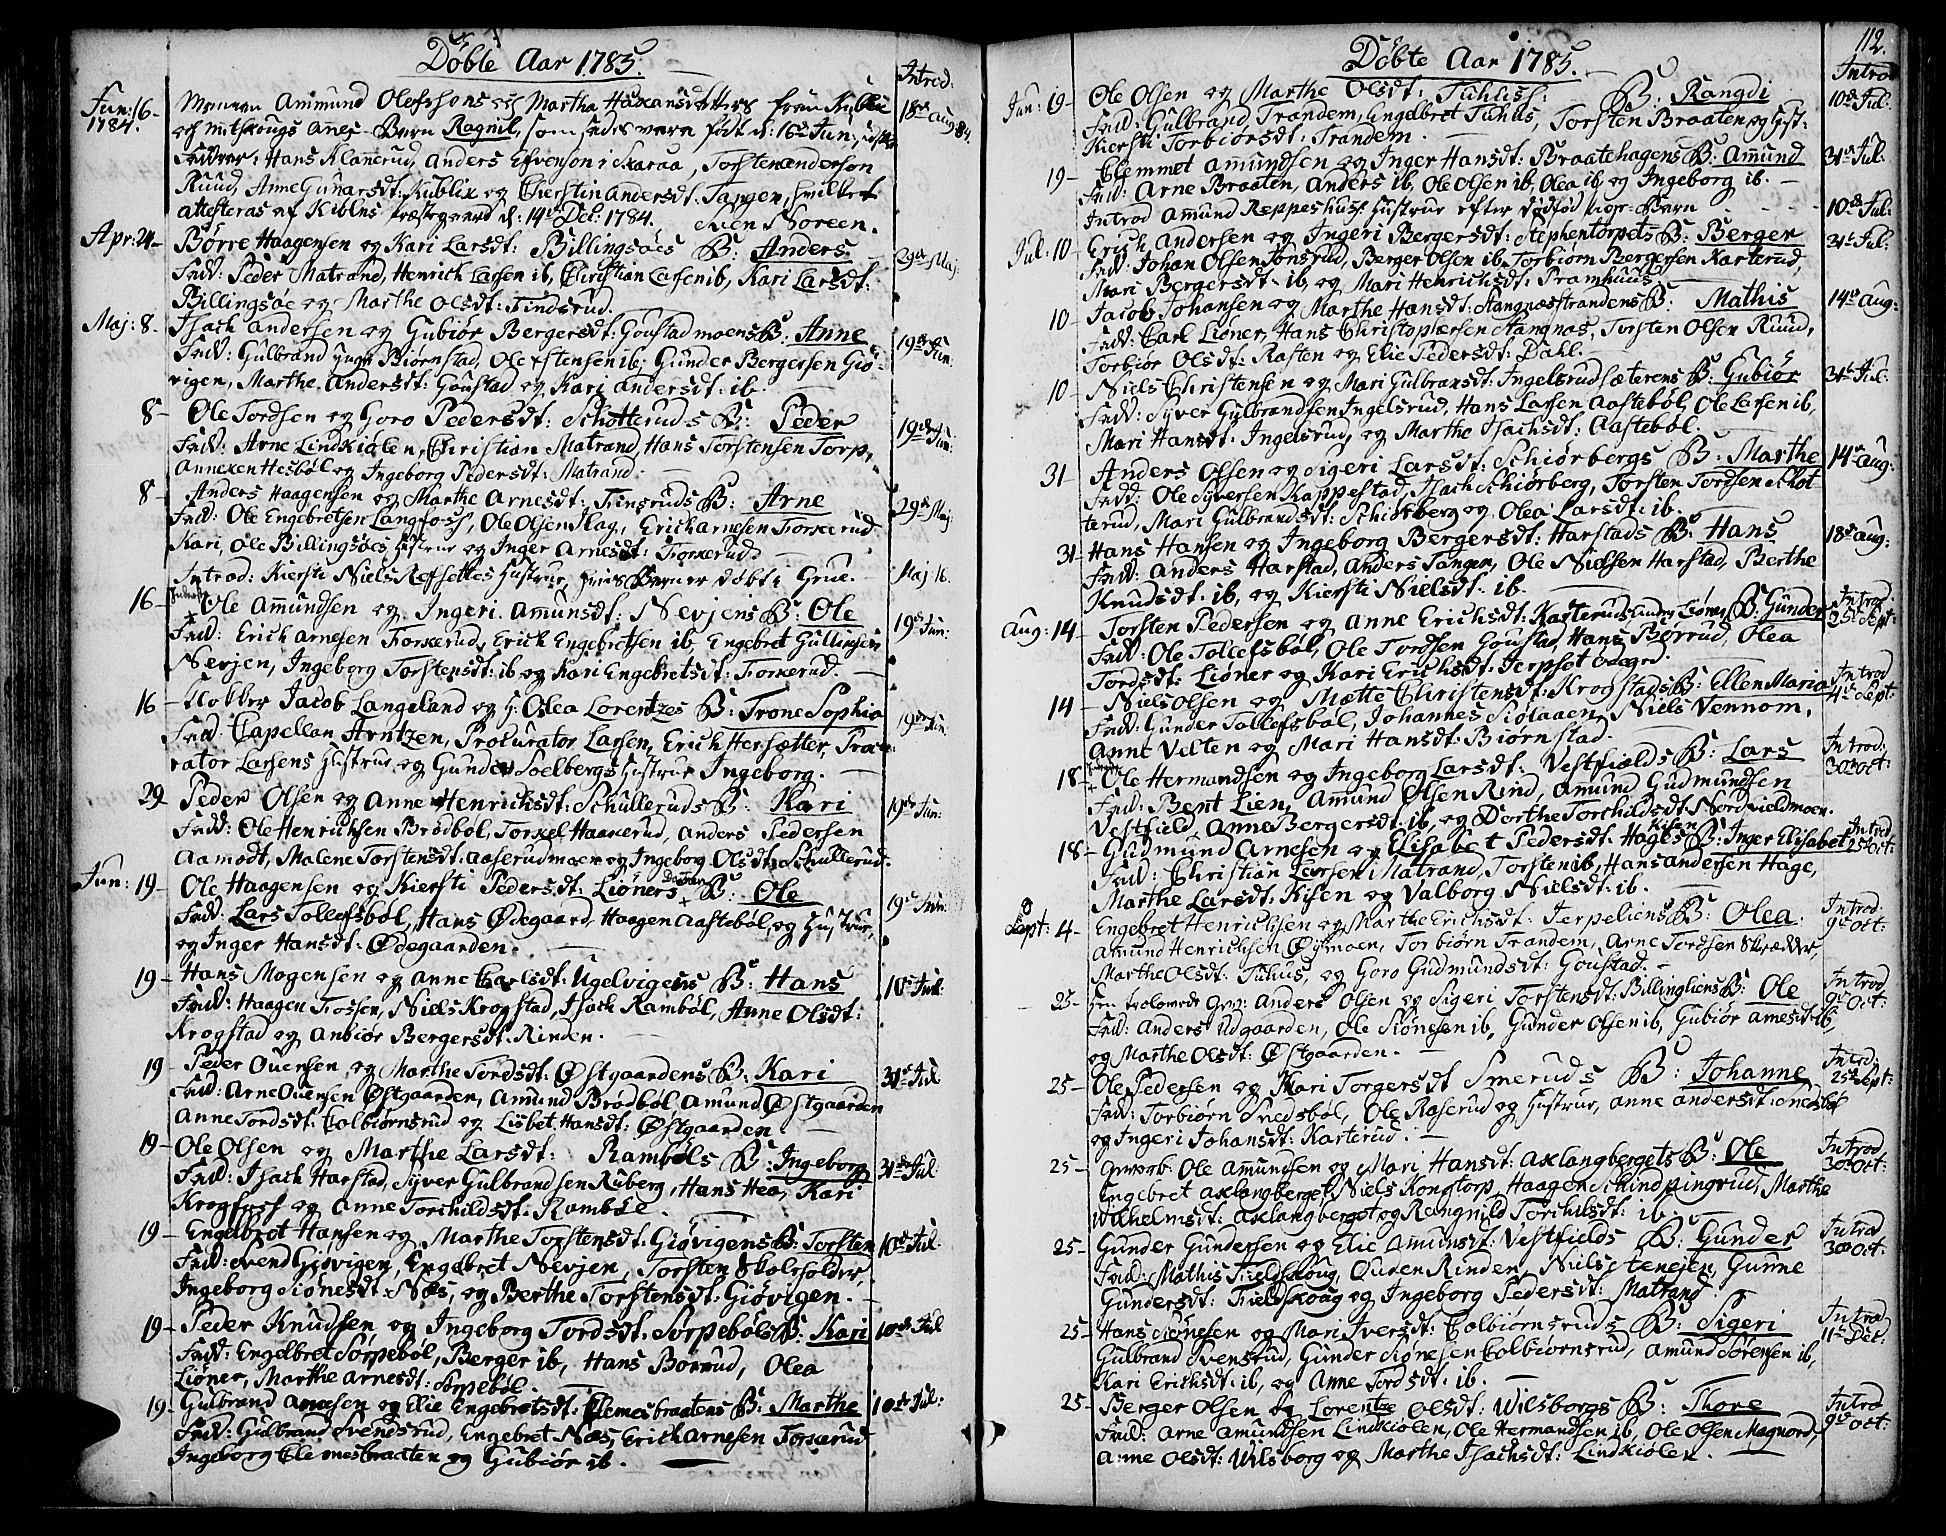 Døbte Aar 1785.
Introd:
Jun: 16- 1784.
Ammund Olofssons och Martha Håxansdotters från
Barn Ragnil, som födt d: 16de Jun,
18de Aug: 84.
Faddrar: Hans Klammerud, Anders i Skaraa, Torsten anderson
Ruud, Anne Gunarsdt: Kublix og Chierstin Andersdt: Tangen, hvilket
attesteras af d: 14de Dec: 1784. Sven Noreen.
Apr: 24- Børre Haagensen og Kari Larsdt: Billingsöes B: Anders
29de Maj:
Fad: Peder Matrand, Henrich Larsen ib, Christian Larsen ib, Kari Larsdt:
Billingsöe og Marthe Olsdt: Tindsrud.
Maj: 8- Isach Andersen og Gubiør Bergersdt: Goustadmoens B: Anne
19de Jun:
Fad: Gulbrand Biørnstad, Ole Estensen ib, Gunder Bergersen Giö-
vigen, Marthe Andersdt: Goustad og Kari Andersdt: ib.
8- Ole Tordsen og Goro Pedersdt: Schotteruds B: Peder
19de Jun:
Fad: Arne Lindkiölen, Christian Matrand, Hans Torstensen Torp,
Annexen Hesböl og Ingeborg Pedersdt: Matrand.
8- Anders Haagensen og Marthe Arnesdt: Tinsruds B: Arne
29de Maj:
Fad: Ole Engebretsen Langfoss, Ole Olsen Slag, Erich Arnesen Torkerud
Kari, Ole Billingsöes Hustrue og Inger Arnesdt: Torkerud.
Introd: Kiersti Niels Refsettes Hustrue, hvis Barn er døbt i Grue.
Maj 16.
16- Ole Ammundsen og Ingeri Amunsdt: Nevjens B: Ole
19de Jun:
Fad: Erich Arnesen Torkerud, Erich Engebretsen ib, Engebret Gullingsen
Nevjen, Ingeborg Torstensdt: ib og Kari Engebretsdt: Torkerud.
16- Klokker Jacob Langeland og H: Olea Lorentzes B: Trone Sophia
19de Jun:
Fad: Capellan Arntzen, Procurator Larsen, Erich Hersætter, Procu-
rator Larsens Hustrue og Gunder Soelbergs Hustrue Ingeborg.
29 Peder Olsen og Anne Henrichsdt: Schulleruds B: Kari
19de Jun:
Fadd: Ole Henrichsen Brödböl, Torkel Haanerud, Anders Pedersen
Aamodt, Malene Torstensdt: Aaserudmoen og Ingeborg Olsdt: Schullerud.
Jun: 19- Ole Haagensen og Kiersti Pedersdt: Liøners B: Ole
19de Jun:
Fadd: Lars Tollefsböl, Hans Ødegaard, Haagen Aasteböl og Hustrue,
og Inger Hansdt: Ødegaarden.
19- Hans Mogensen og Anne Carlsdt: Ugelvigens B: Hans
10de Jul:
Fad: Haagen Fossen, Niels Krogstad, Isach Ramböl, Anne Olsdt:
Krogstad og Anbiör Bergersdt: Rinden.
19 Peder Ouensen og Marthe Tordsdt: Østgaardens B: Kari
31te Jul
Fad: Arne Ouensen Østgaarden, Amund Brødbøl Amund Østgaarden
Anne Tordsdt: Colbiørnsrud og Lisbet Hansdt: Østgaarden.
19- Ole Olsen og Marthe Larsdt: Ramböls B: Ingeborg
31te Jul
Fad: Isach Harstad, Syver Gulbrandsen Ruberg, Hans Hea, Kari
Krogfoss og Anne Torchildsdt: Ramböe.
19- Engelbret Hansen og Marthe Torstensdt: Giøvigens B: Torsten
10de Jul:
Fad: Svend Giøvigen, Engebret Nevjen, Torsten Skoleholder,
Ingeborg Siønesdt: Næs, og Berthe Torstensdt: Giøvigen.
19- Peder Knudsen og Ingeborg Tordsdt: Sörpeböls B: Kari
10de Jul
Fad: Engelbret Sörpeböl, Berger ib, Hans Borrud, Olea
Liöner, Marthe Arnesdt: Sörpeböl.
19- Gulbrand Arnesen og Elie Engebretsdt: Clemesbraatens B: Marthe
10de Jul:
Fad: Gulbrand Svendsrud, Engebret Næs, Erich Arnesen Torkerud
Ingeborg Clemesbraaten og Gubiör ib.
Døbte Aar 1785.
112.
Introd
Jun: 19- Ole Olsen og Marthe Olsdt: Tuhuss: B: Rangdi
10de Jul:
Fad: Gulbrand Trandem, Engelbret Tuhus, Torsten Braaten og Hust:
Kiersti Torbiörsdt: Trandem.
19- Clemmet Amundsen og Inger Hansdt: Braatehagens B: Amund
31te Jul:
Fad: Arne Braaten, Anders ib, Ole Olsen ib, Olea ib, og Ingeborg ib.
Introd Amund Reppeshuss Hustrue efter dödföd uægte Barn
10de Jul:
Jul: 10 Erich Andersen og Ingeri Bergersdt: Stephentorpets B: Berger
31te Jul:
Fad: Johan Olsen Tonsrud, Berger Olsen ib, Torbiørn Bergersen Karterud,
Mari Bergersdt: ib, og Mari Henrichsdt: Pramhuus
10- Jacob Johansen og Marthe Hansdt: Stangnæsstrandens B: Mathis
14de Aug:
Fad: Carl Liöner, Hans Christophersen Stangnæs, Torsten Olsen Ruud,
Torbiör Olsdt: Rasten og Elie Pedersdt: Dahl.
10 Niels Christensen og Mari Gulbransdt: Ingelsrudsæterens B: Gubiör
31te Jul:
Fad: Syver Gulbrandsen Ingelsrud, Hans Larsen Aasteböl, Ole Larsen ib,
Mari Hansdt: Ingelsrud, og Marthe Isachsdt: Aasteböl.
31- Anders Olsen og Sigeri Larsdt: Schiörbergs B: Marthe
14de Aug:
Fadd: Ole Syversen Kappestad, Isach Schiörberg, Torsten Tordsen Schot-
terud, Mari Gulbrandsdt: Schiörberg og Olea Larsdt: ib.
31 Hans Hansen og Ingeborg Bergersdt: Harstads B: Hans
18de Aug:
Fad: Anders Harstad, Anders Tangen, Ole Nielsen Harstad, Berthe
Knudsdt: ib, og Kiersti Nielsdt: ib.
Aug: 14- Torsten Pedersen og Anne Erichsdt: Karterud Liöner B: Gunder
Introd 25de Sept:
Fad: Ole Tollefsböl, Ole Tordsen Goustad, Hans Borrud, Olea
Tordsdt: Liöner og Kari Erichsdt: Jerpset ödegrd.
14- Niels Olsen og Mætte Christensdt: Krogstads B: Ellen Maria
Introd 4de Sept:
Fad: Gunder Tollefsböl, Johannes Siølaaen, Niels Vennom,
Anne Velten og Mari Hansdt: Biørnstad.
18- Ole Hermandsen og Ingeborg Larsdt: Vestfields B: Lars
Introd: 30de Oct:
Fad: Bent Lien, Ammund Olsen Rind, Amund Gudmundsen
Vestfield, Anne Bergersdt: ib, og Dorthe Torchildsdt: Nordfieldmoen.
18- Gudmund Arnesen og Elisabet Pedersdt: Hages B: Inger Elisabet
Introd 25de Oct:
Fad: Christian Larsen Matrand, Torsten ib, Hans Andersen Hage,
Marthe Larsdt: Kisen og Valborg Nielsdt: ib.
Sept: 4- Engebret Henrichsen og Marthe Erichsdt: Jerpeliens B: Olea.
Introd: 9de Oct:
Amund Henrichsen Øiemoen, Torbiørn Trandem, Arne Tordsen Skrædder,
Marthe Olsdt: Tuhus, og Goro Gudmundsdt: Goustad.
25- Anders Olsen og Sigeri Torstensdt: Billingliens B: Ole
Introd 9de Oct:
Fad: Anders Udgaarden, Ole Siönesen ib, Gunder Olsen ib, Gubiör Arnesdt: ib,
og Marthe Olsdt: Østgaarden.
25- Ole Pedersen og Kari Torgersdt Smeruds B: Johanne
Introd: 25de Sept:
Fad: Torbiørn Fredsböl, Ole Raserud og Hustrue, Anne Andersdt:
og Ingeri Johansdt: Karterud.
25- Ole Ammundsen og Mari Hansdt: Axlangbergets B: Ole
Introd 30de Oct:
Engebret Axlangberget, Niels Kongtorp, Haagen Schindpungrud, Marthe
Wilhelmsdt: Axlangberget og Rangnild Torchilsdt: ib.
25- Gunder Gundersen og Elie Amunsdt: Vestfields B: Gunder
Introd 30de Oct:
Fad: Mathis Fieldskoug, Ouden Rinden, Niels Stenejen, Gunne
Gundersdt: Fieldskoug og Ingeborg Pedersdt: Matrand
25- Hans Siönesen og Mari Iversdt: Colbiørnsruds B: Sigeri
Introd 11te Dec:
Gulbrand Svensrud, Gunder Siönesen Colbiørnsrud, Amund Sörensen ib,
Kari Erichsdt: ib, og Anne Tordsdt: ib.
25- Berger Olsen og Lorentze Olsdt: Wilsborgs B: Thore
Introd 9de Oct:
Fad: Arne Amundsen Lindkiölen, Ole Hermandsen ib, Ole Olsen Magnord,
Anne Olsdt: Wilsborg og Marthe Isachsdt: Lindkiölen.